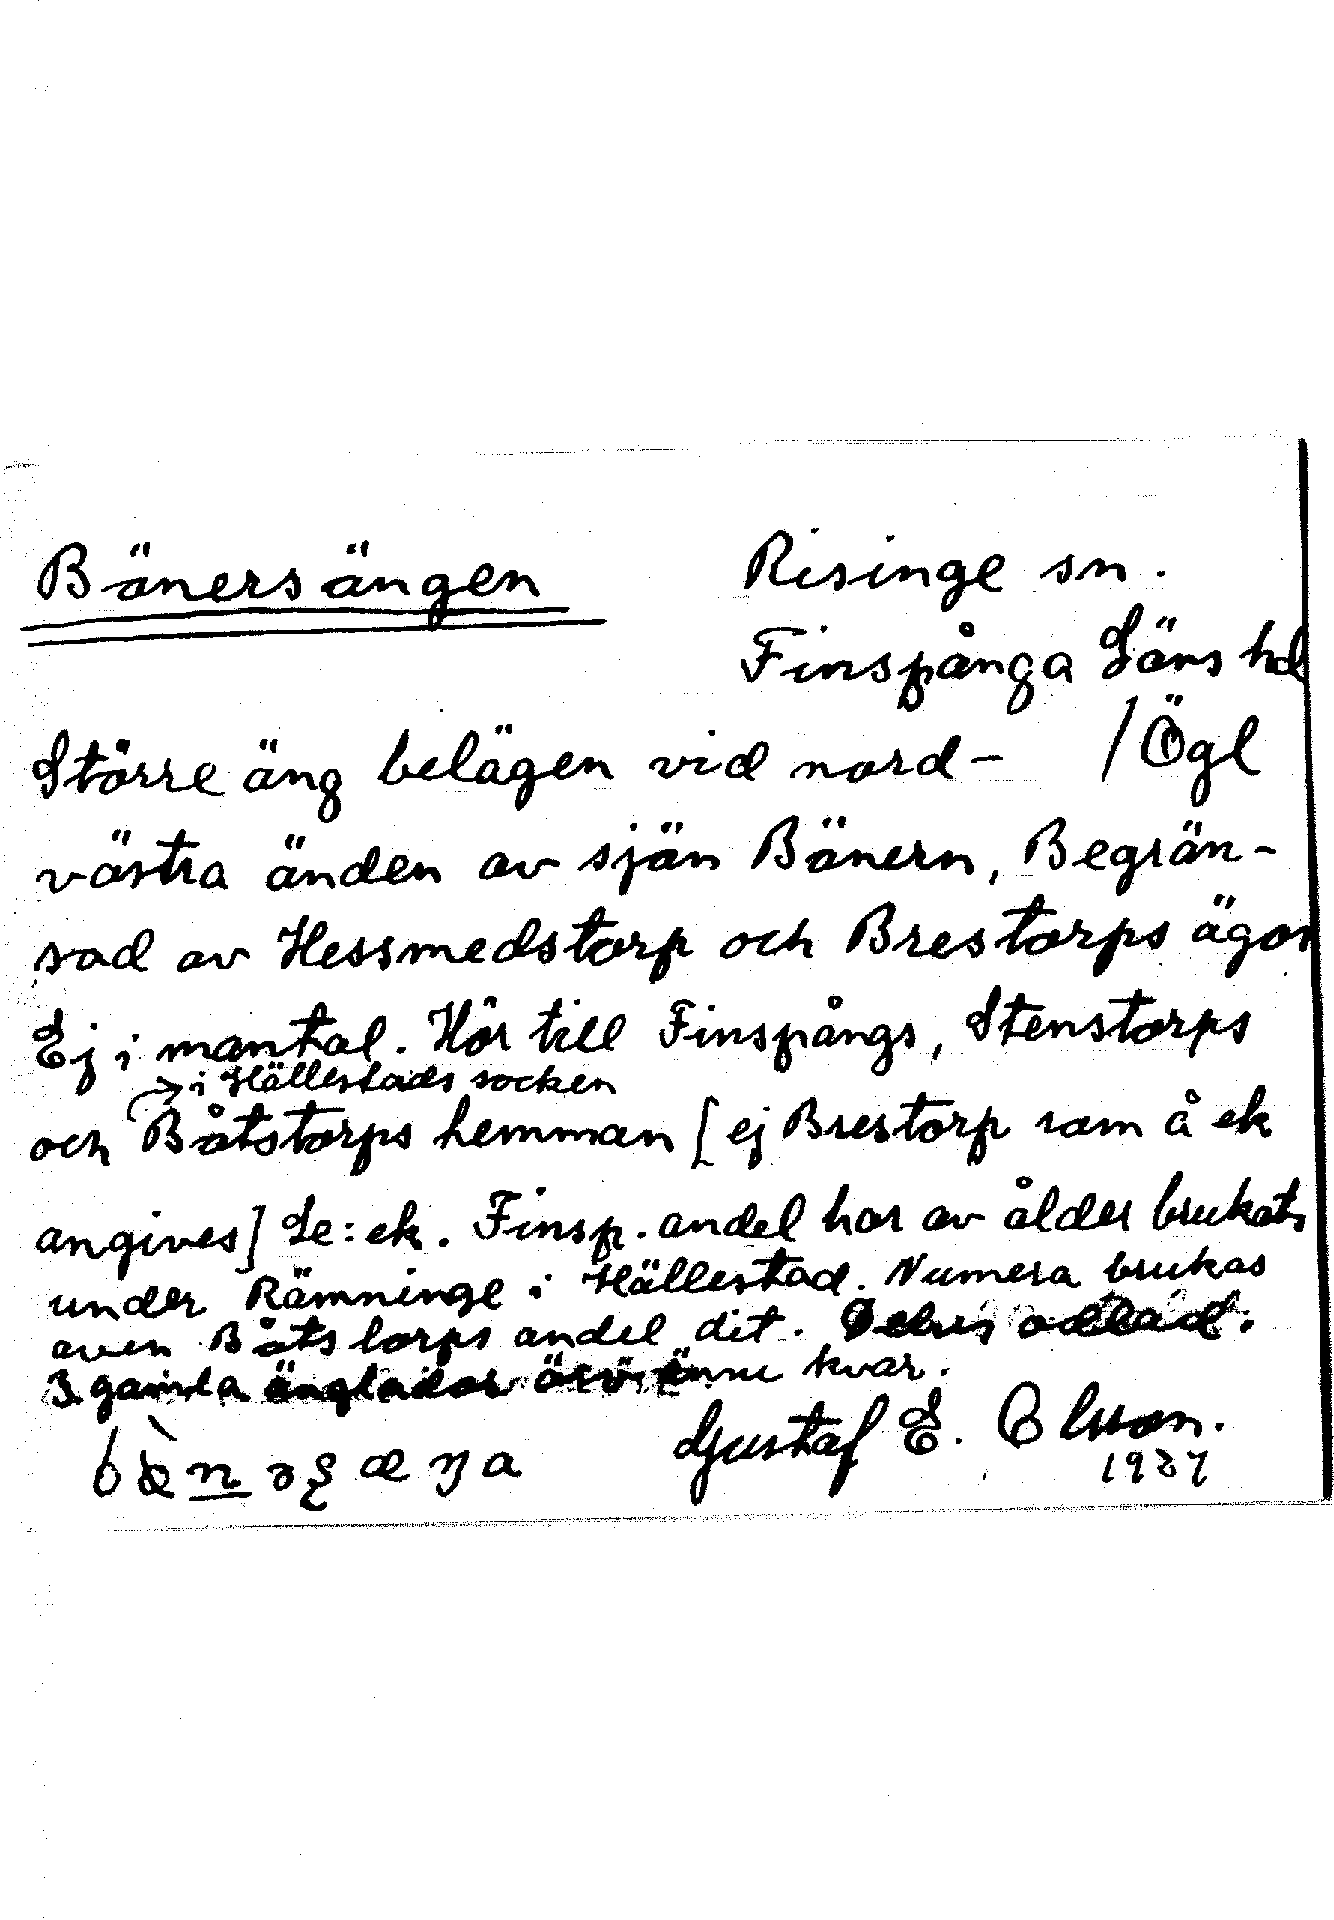 Bönersängen
Risinge sn.
Finspånga Läns hd
/Ögl
Större äng belägen vid nord-
västra änden av sjön Bönern, Begrän-
sad av Hessmedstorp och Brestorps ägor
Ej i mantal. Hör till Finspångs, Stenstorps
i Hällestads socken
och Båtstorps hemman [ej Brestorp som å ek
angives] Se: ek. Finsp. andel har av ålder brukats
under Rämninge i Hällestad. Numera brukas
även Båtstorps andel dit. Delvis odlad.
3 gamla änglador äro ännu kvar.
Gustaf E. Olsson.
1927